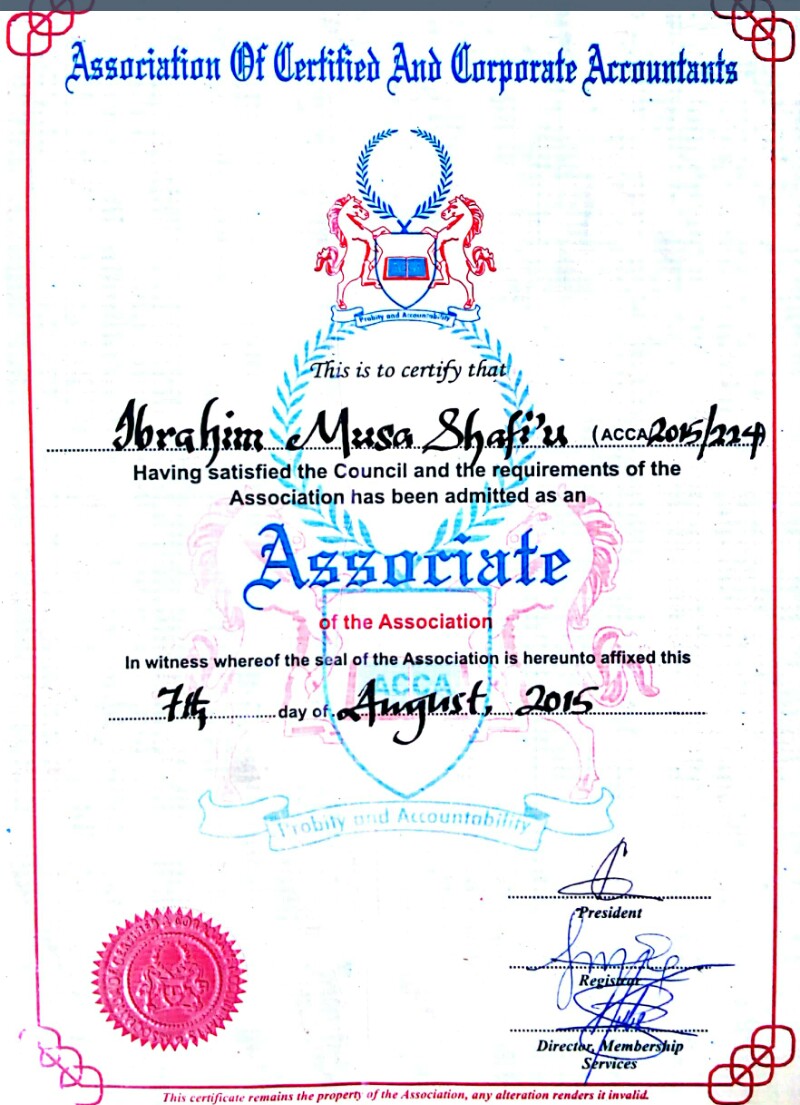 Association Of Certified And Corporate Accountants
Probity and Accountability
This is to certify that
Ibrahim Musa Shafi'u (ACCA2015/224)
Having satisfied the Council and the requirements of the
Association has been admitted as an
Associate
of the Association
In witness whereof the seal of the Association is hereunto affixed this
ACCA
7th day of August, 2015
Probity and Accountability
President
Registrar
Director, Membership
Services
This certificate remains the property of the Association, any alteration renders it invalid.